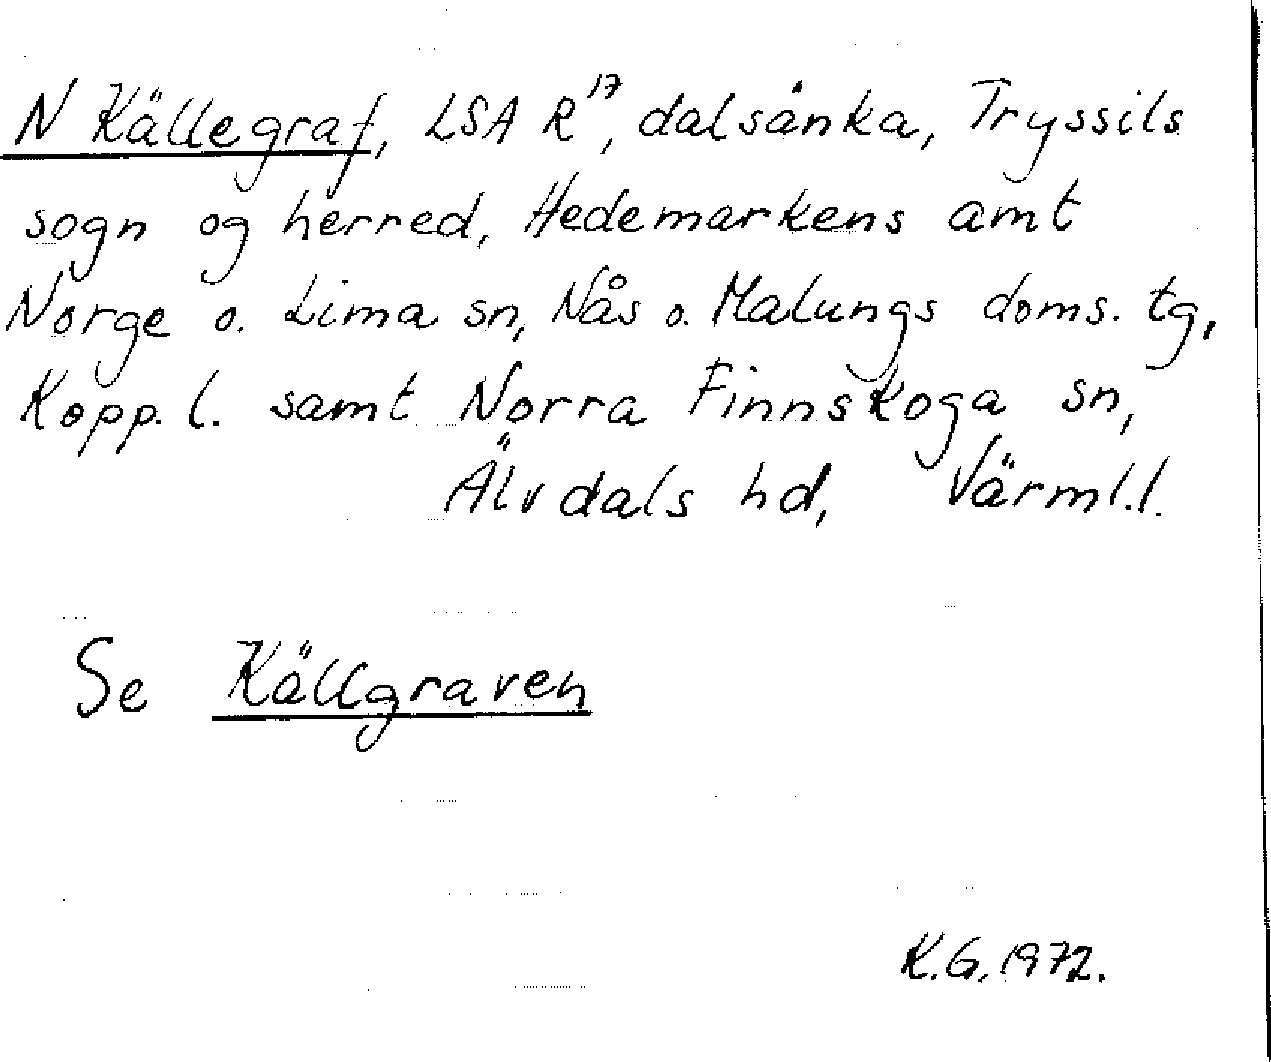 N Källegraf, LSA R¹⁷, dalsänka, Tryssils
sogn og herred, Hedemarkens amt
Norge o. Lima sn, Nås o. Malungs doms. tg,
Kopp. l. samt Norra Finnskoga sn,
Älvdals hd, Värml.l.
Se Källgraven
K.G. 1972.